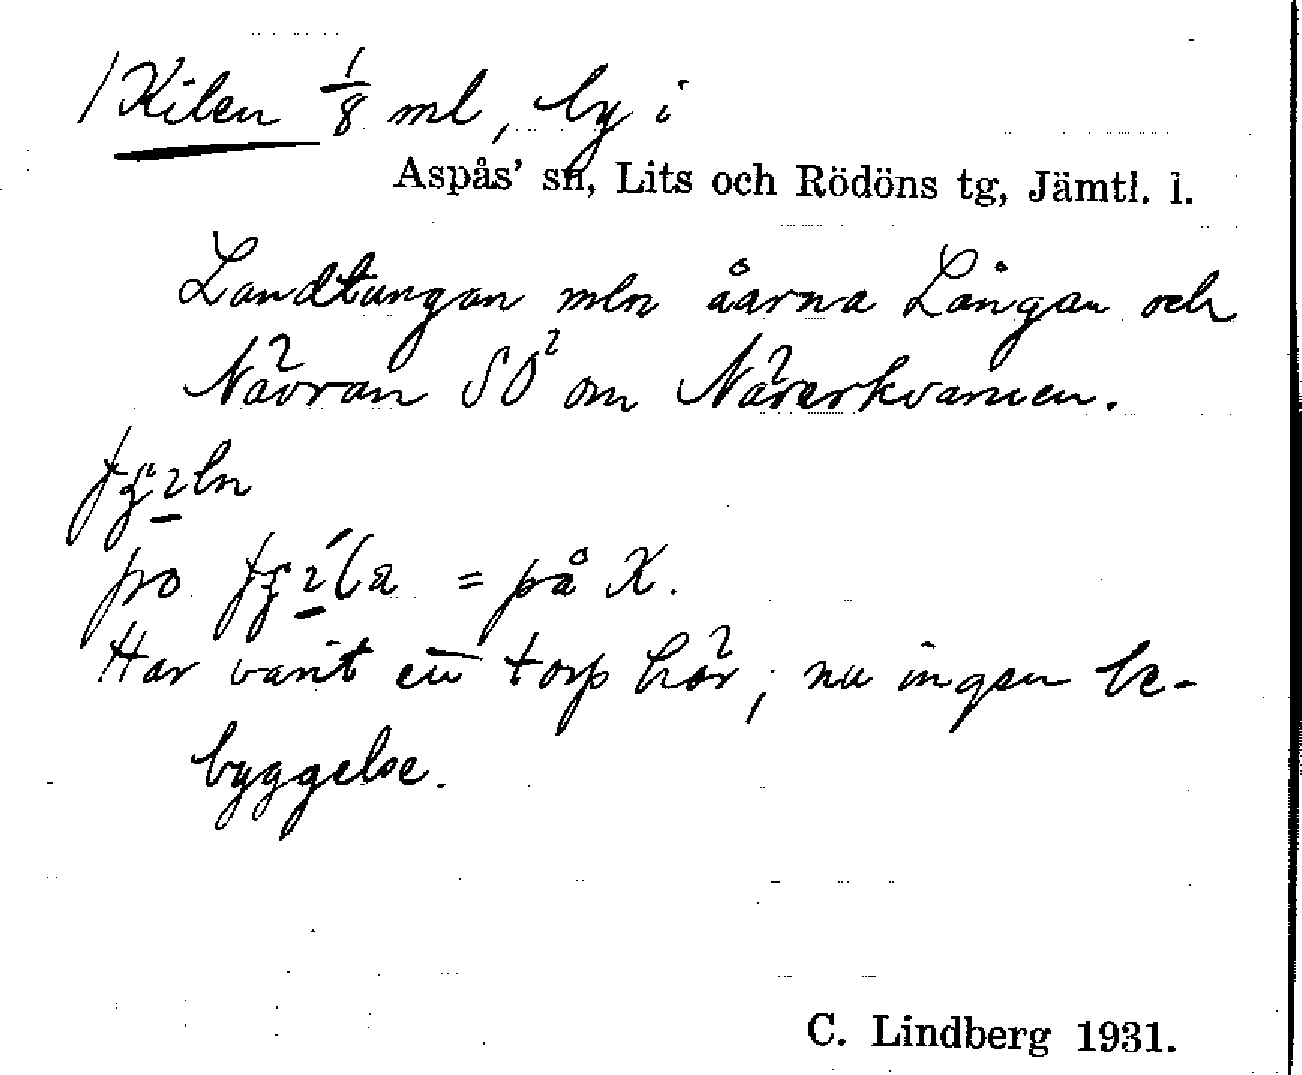 /Kilen 1/8 ml, by i
Aspås' sn, Lits och Rödöns tg, Jämtl. l.
Landtungan mln åarna Långan och
Nävran SO² om Näverkvarnen.
= på K.
Har varit en torp här, nu ingen be-
byggelse.
C. Lindberg 1931.